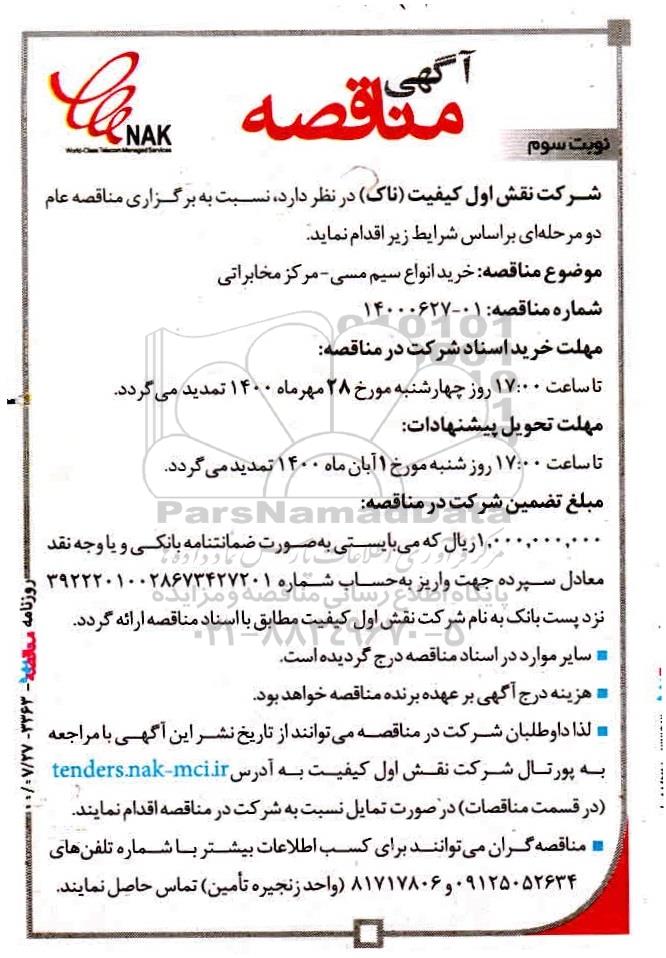 آگهی
مناقصه
NAK
World-Class Telecom Managed Services
نوبت سوم
شرکت نقش اول کیفیت (ناک) در نظر دارد، نسبت به برگزاری مناقصه عام
دو مرحله‌ای براساس شرایط زیر اقدام نماید.
موضوع مناقصه: خرید انواع سیم مسی-مرکز مخابراتی
شماره مناقصه: ۰۱-۱۴۰۰۰۶۲۷
مهلت خرید اسناد شرکت در مناقصه:
تا ساعت ۱۷:۰۰ روز چهارشنبه مورخ ۲۸ مهرماه ۱۴۰۰ تمدید می‌گردد.
مهلت تحویل پیشنهادات:
تا ساعت ۱۷:۰۰ روز شنبه مورخ ۱ آبان ماه ۱۴۰۰ تمدید می‌گردد.
ParsNamadData
مبلغ تضمین شرکت در مناقصه:
۱,۰۰۰,۰۰۰,۰۰۰ ریال که می‌بایستی به‌صورت ضمانتنامه بانکی و یا وجه نقد
معادل سپرده جهت واریز به‌حساب شماره ۳۹۲۲۲۰۱۰۰۲۸۶۷۳۴۲۷۲۰۱
پایگاه اطلاع رسانی مناقصه و مزایده
نزد پست بانک به نام شرکت نقش اول کیفیت مطابق با اسناد مناقصه ارائه گردد.
۰۲۱-۸۸۳۴۹۶۷۰-۵
سایر موارد در اسناد مناقصه درج گردیده است.
هزینه درج آگهی بر عهده برنده مناقصه خواهد بود.
لذا داوطلبان شرکت در مناقصه می‌توانند از تاریخ نشر این آگهی با مراجعه
به پورتال شرکت نقش اول کیفیت به آدرس tenders.nak-mci.ir
(در قسمت مناقصات) در صورت تمایل نسبت به شرکت در مناقصه اقدام نمایند.
مناقصه‌گران می‌توانند برای کسب اطلاعات بیشتر با شماره تلفن‌های
۰۹۱۲۵۰۵۲۶۳۴ و ۸۱۷۱۷۸۰۶ (واحد زنجیره تأمین) تماس حاصل نمایند.
روزنامه مناقصه - ۳۳۶۳ - ۰۰/۰۷/۲۷